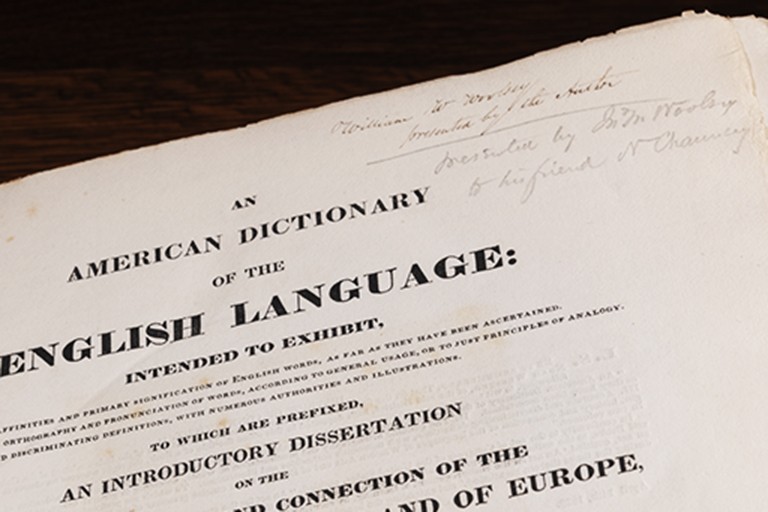 William W Woolsey
presented by the Author
presented by Mr Woolsey
to his friend N Chauncey
AN
AMERICAN DICTIONARY
OF THE
ENGLISH LANGUAGE:
INTENDED TO EXHIBIT,
AFFINITIES AND PRIMARY SIGNIFICATION OF ENGLISH WORDS, AS FAR AS THEY HAVE BEEN ASCERTAINED.
ORTHOGRAPHY AND PRONUNCIATION OF WORDS, ACCORDING TO GENERAL USAGE, OR TO JUST PRINCIPLES OF ANALOGY.
DISCRIMINATING DEFINITIONS, WITH NUMEROUS AUTHORITIES AND ILLUSTRATIONS.
TO WHICH ARE PREFIXED,
AN INTRODUCTORY DISSERTATION
ON THE
CONNECTION OF THE
AND OF EUROPE,